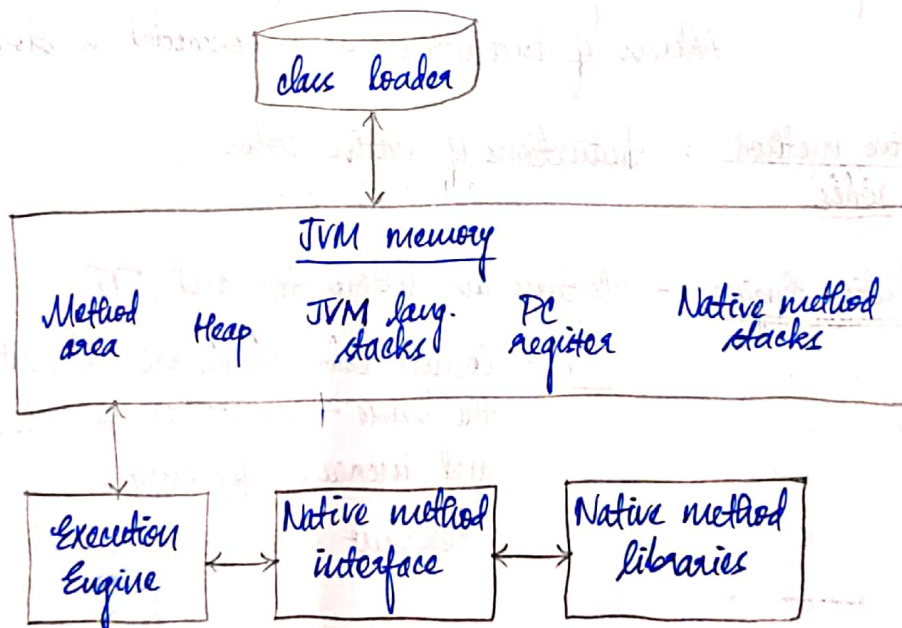 class loader
JVM memory
Method area
Heap
JVM lang. stacks
PC register
Native method stacks
Execution Engine
Native method interface
Native method libraries